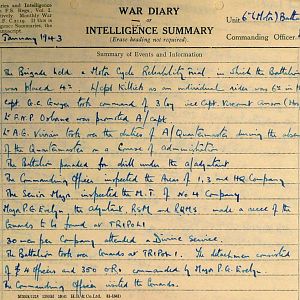 WAR DIARY
INTELLIGENCE SUMMARY
(Erase heading not required).
Unit 6th (Motor) Battn
Commanding Officer
January 1943
Summary of Events and Information
The Brigade held a Motor Cycle Reliability Trial in which the Battalion
was placed 4th. A/Cpl Killick as an individual rider was 6th in
Capt. G.C. took command of 3 Coy vice Capt. Vincent
Lt P.H.P. was promoted A/Capt
Lt A.G. Vivian took over the duties of A/Quartermaster during the absence
of the Quartermaster on a Course of administration
The Battalion paraded for drill under the a/adjutant
The Commanding Officer inspected the Areas of 1, 3 and HQ Company
The Senior Major inspected the M.T. of No 4 Company
Major P.G. Evelyn, the adjutant, RSM and RQMS made a recce of the
tenands to be found at TRIPOLI
30 men per Company attended a Divine Service.
The Battalion took over tenands at TRIPOLI. The detachment consisted
of 4 officers and 350 ORs. commanded by Major P.G. Evelyn
The Commanding Officer visited the tenands.